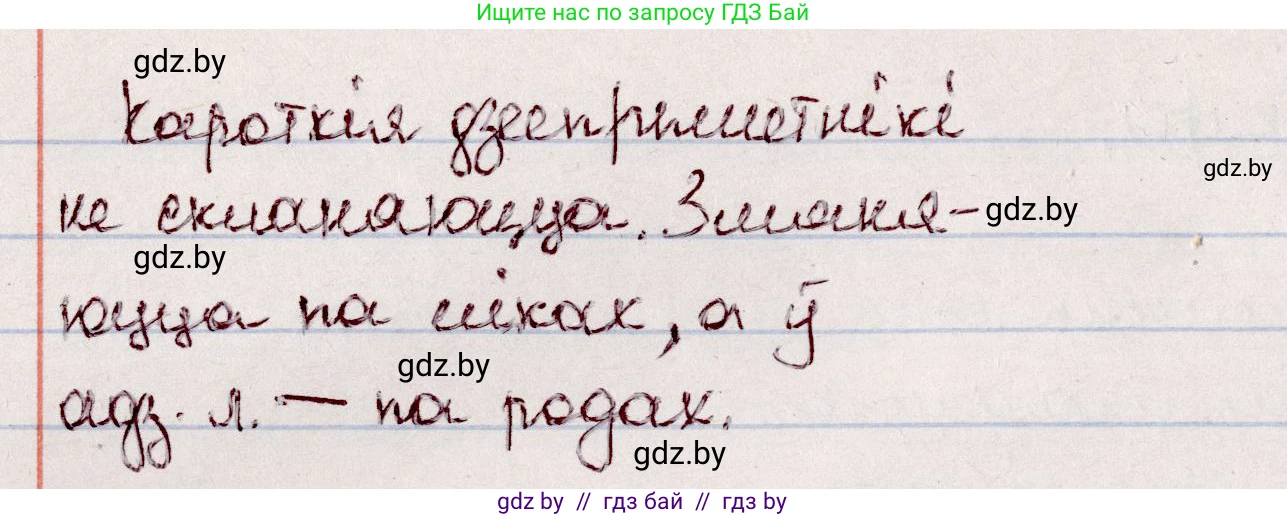 Ищите нас по запросу ГДЗ Бай
gdz.by
Кароткія дзеепрыметнікі
gdz.by
не скланяюцца. Змяня-
gdz.by
gdz.by
юцца па ліках, а ў
gdz.by
адз. л. — па родах.
gdz.by
gdz.by // гдз бай // гдз by